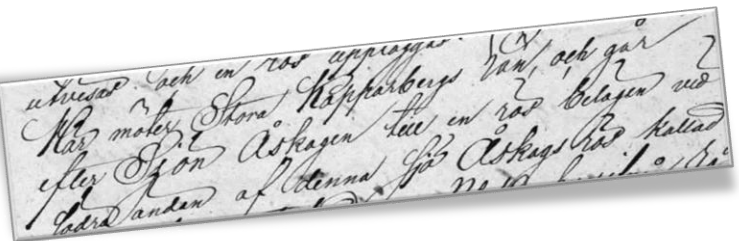 utvisas och en rös upplagges.
Här möter Stora Kopparbergs Län, och går
efter Sjön Åskagen till en rös belägen vid
södra ändan af denna sjö Åskags rös kallad